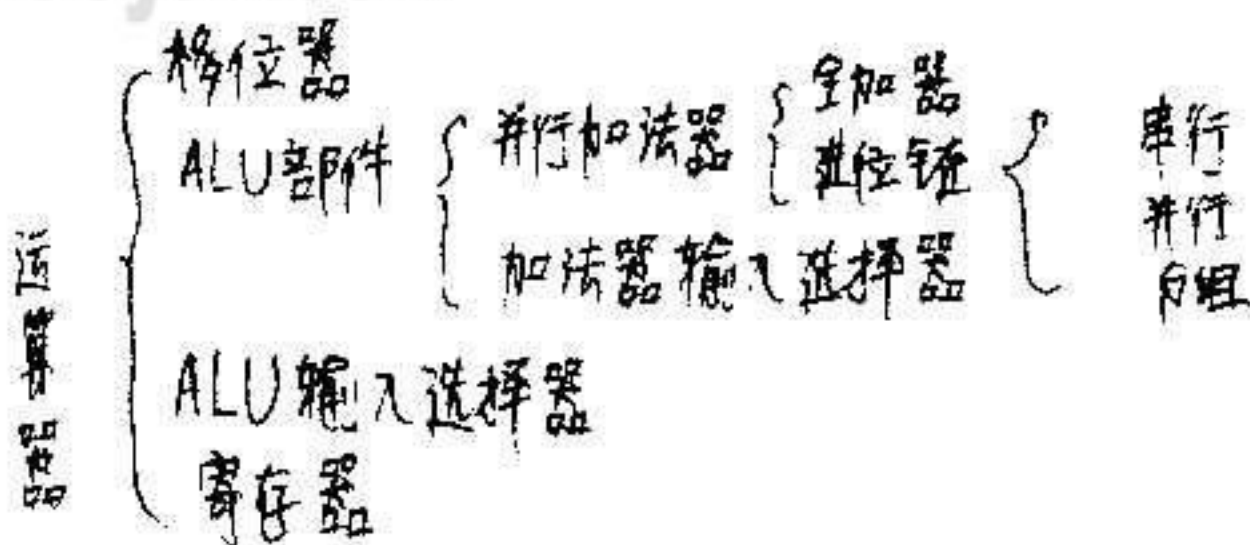 运算器
移位器
ALU部件
并行加法器
全加器
进位链
串行
并行
分组
加法器输入选择器
ALU输入选择器
寄存器